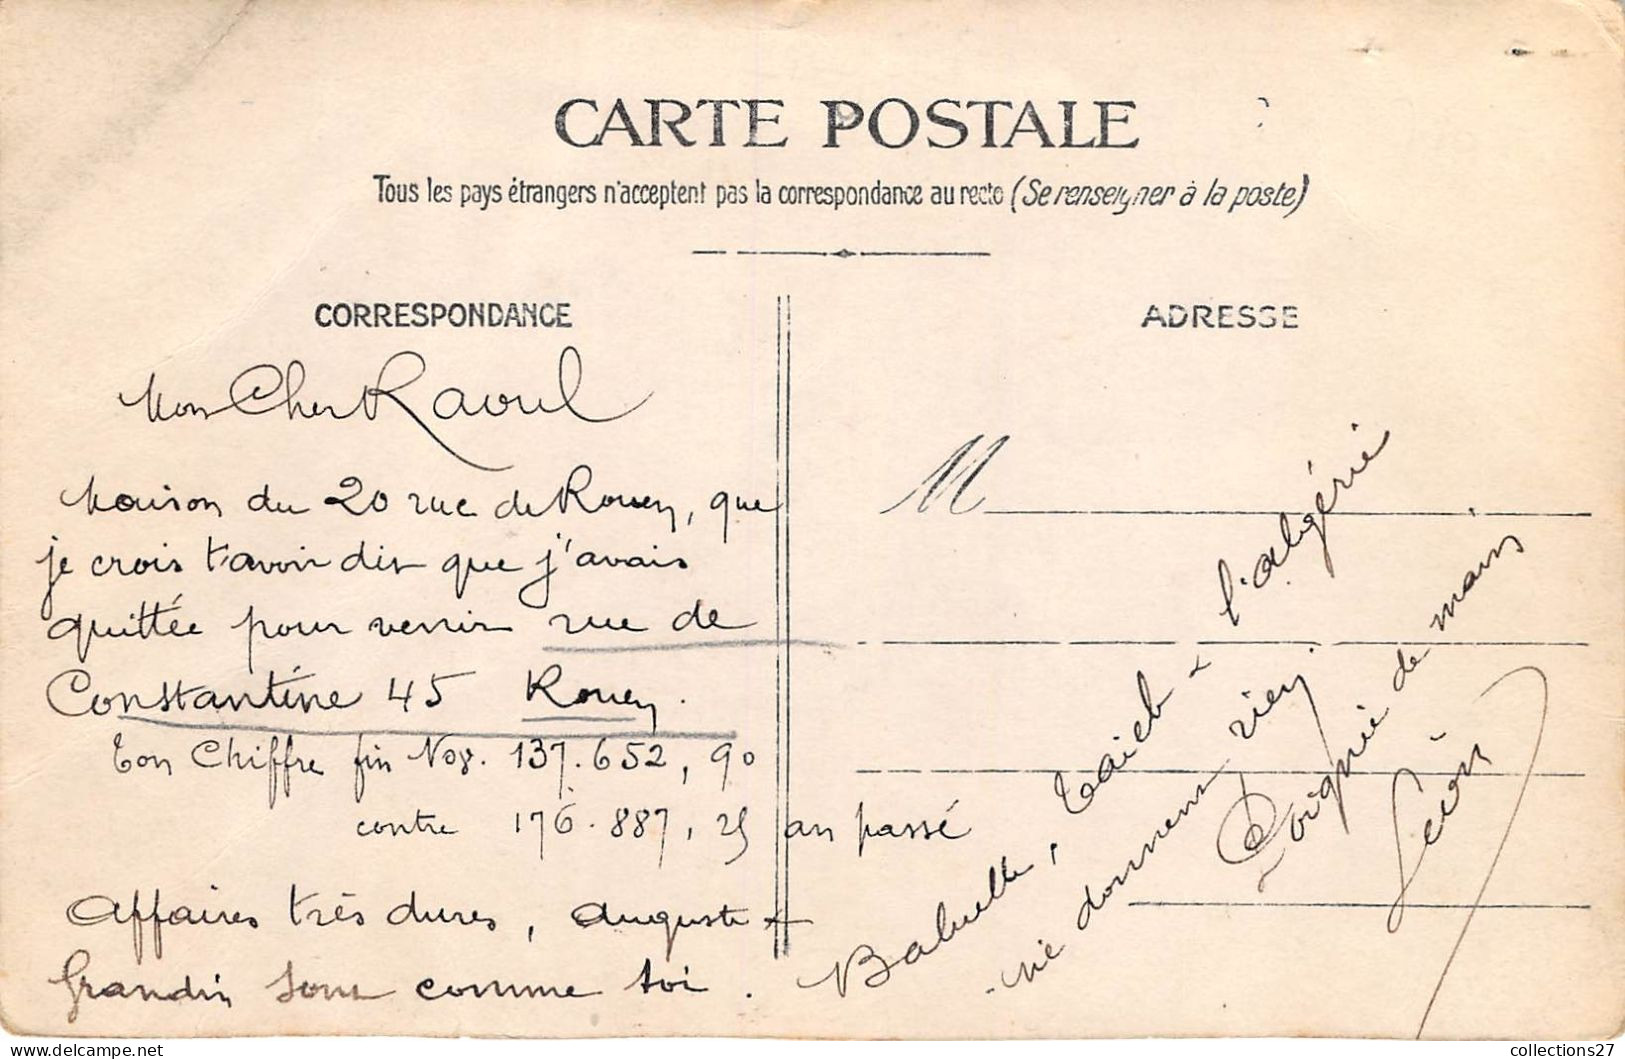 CARTE POSTALE
Tous les pays étrangers n'acceptent pas la correspondance au recto (Se renseigner à la poste)
CORRESPONDANCE
ADRESSE
Mon Cher Raoul
Maison du 20 rue de Rouen, que
je crois t'avoir dit que j'avais
quittée pour venir rue de
Constantine 45 Rouen.
Ton Chiffre fin Nov. 137.652,90
contre 176.887,25 an passé
Affaires très dures, Auguste +
Grandin sont comme toi.
M
Taieb + l'algérie
ne donnent rien.
Poignée de mains
Léon
collections27